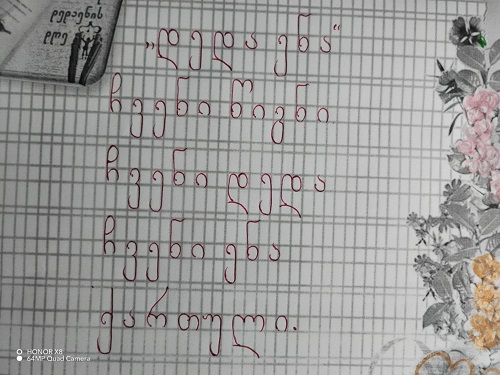 „დედა ენა“
ჩვენი წიგნი
ჩვენი დედა
ჩვენი ენა
ქართული.
HONOR X8
64MP Quad Camera